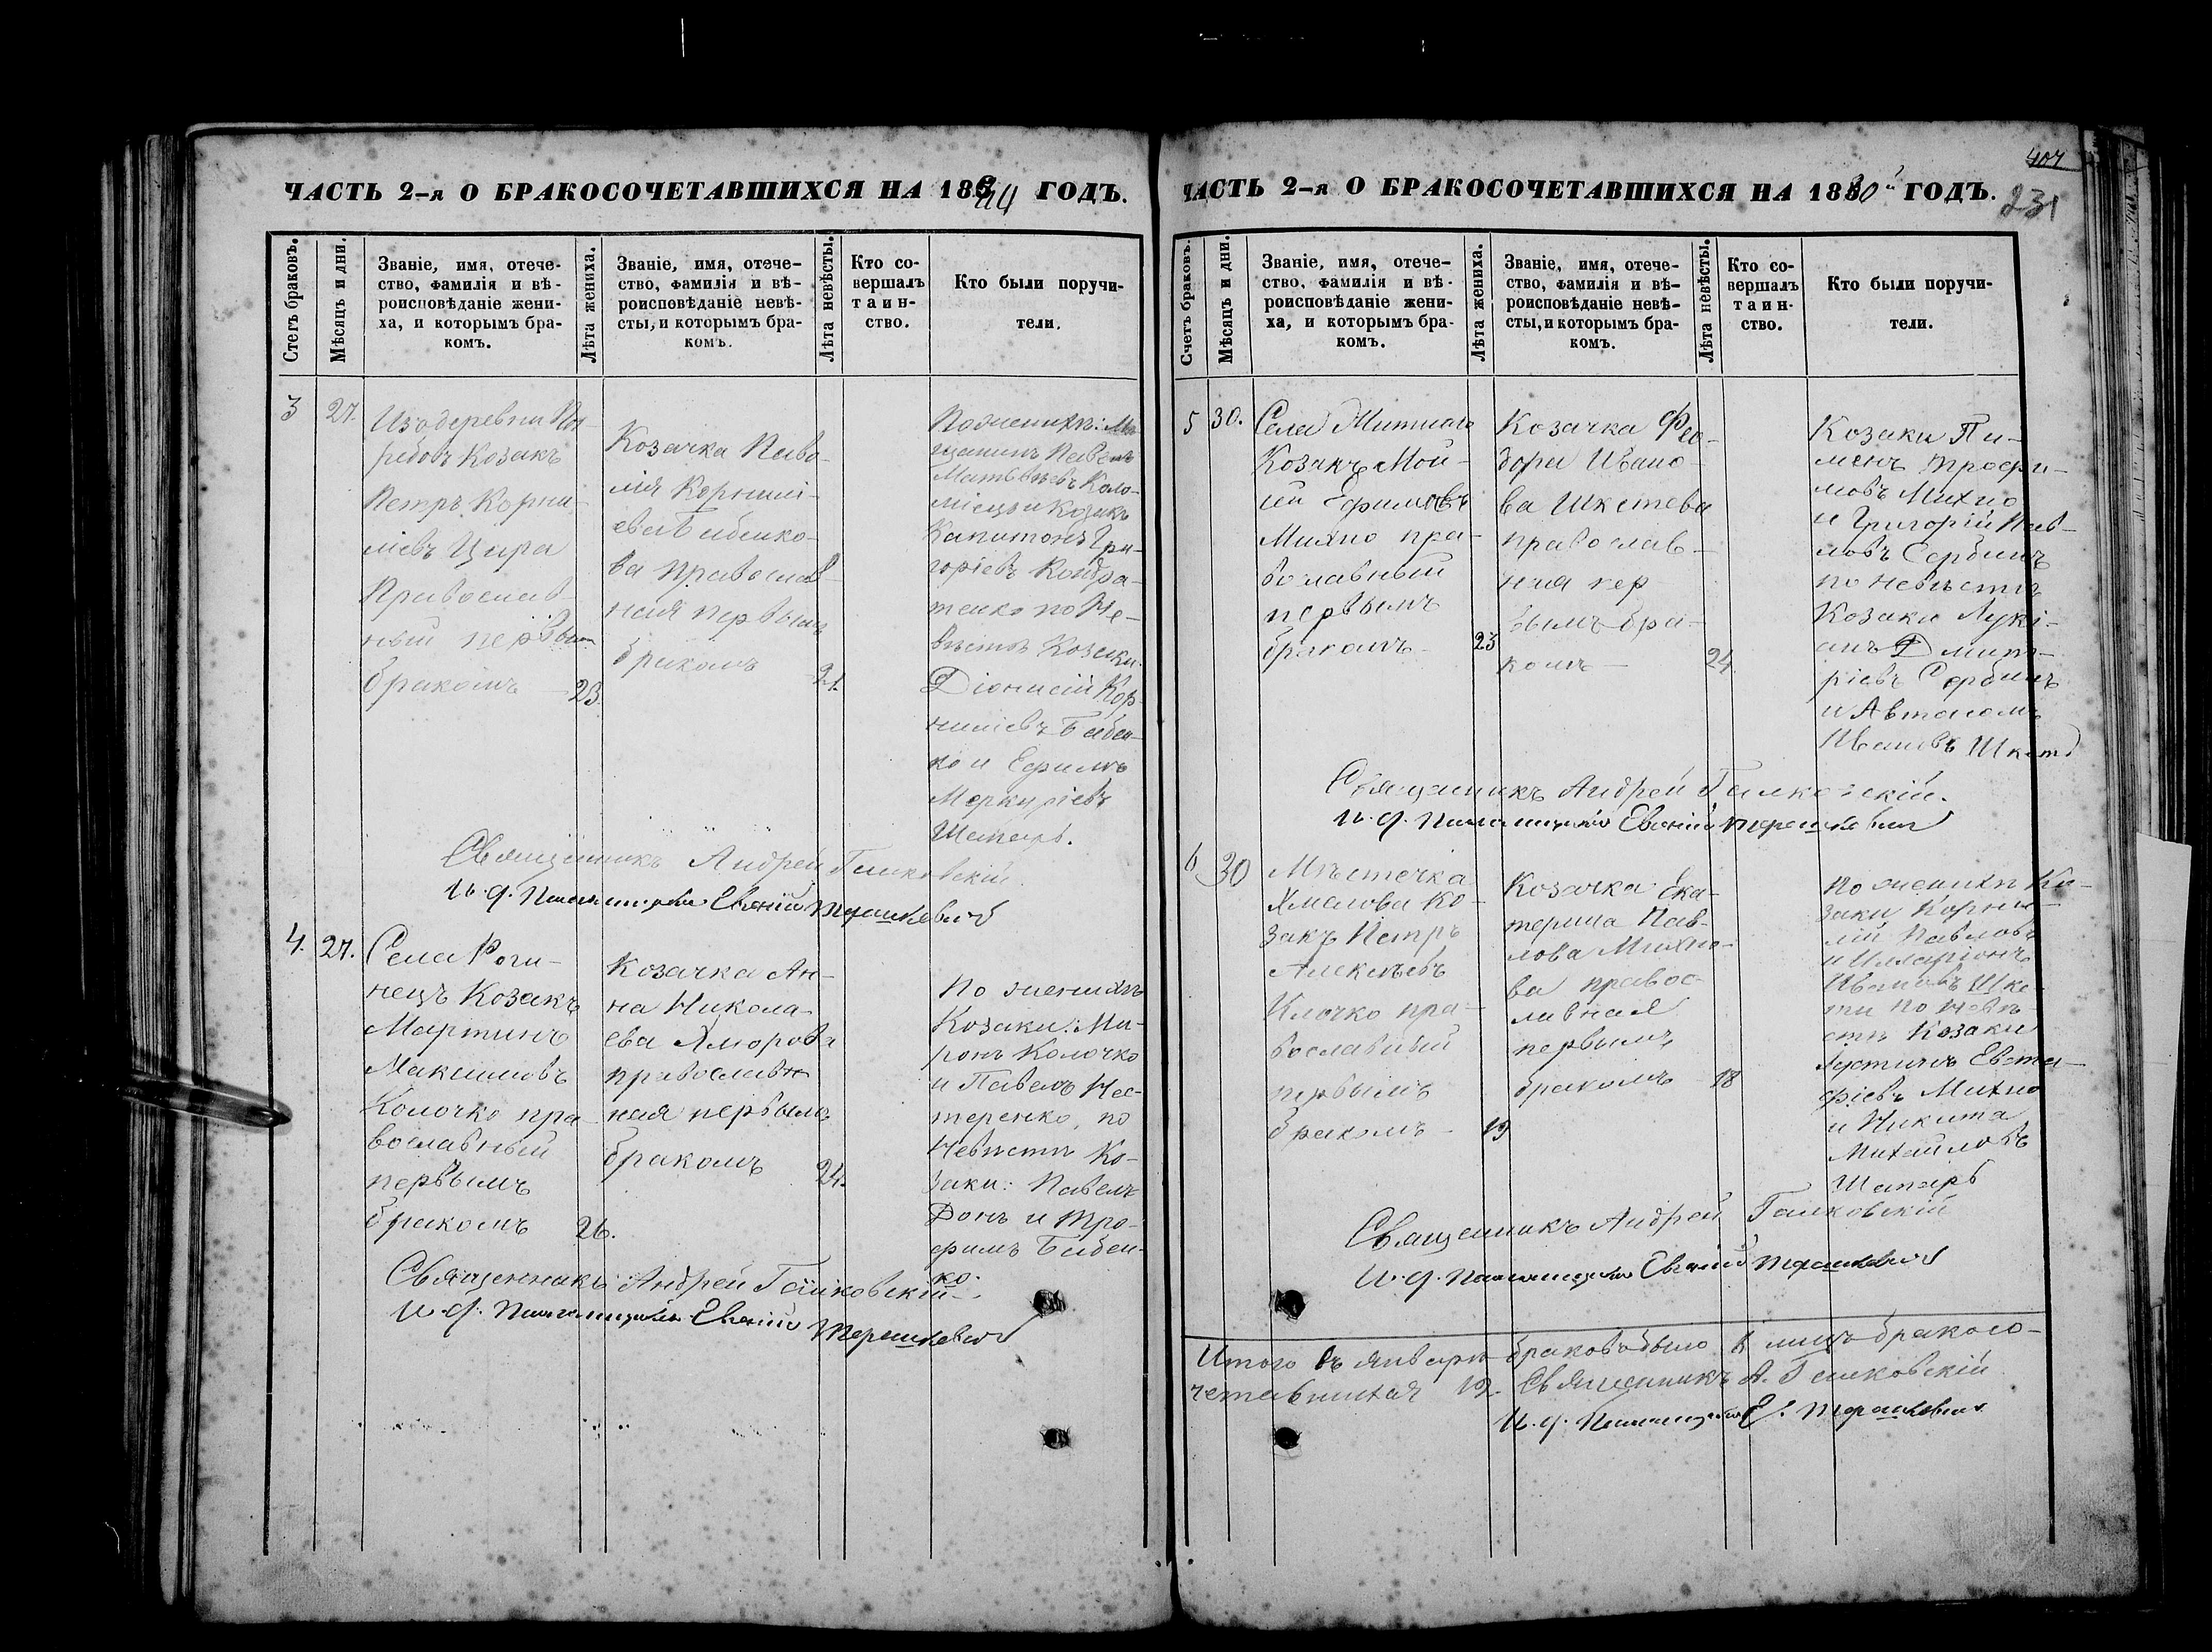 ЧАСТЬ 2-я О БРАКОСОЧЕТАВШИХСЯ НА 18 ГОДЪ.
Счетъ браковъ.
Мѣсяцъ и дни.
Званіе, имя, отече-
ство, фамилія и вѣ-
роисповѣданіе жени-
ха, и которымъ бра-
комъ.
Лѣта жениха.
Званіе, имя, отече-
ство, фамилія и вѣ-
роисповѣданіе невѣ-
сты, и которымъ бра-
комъ.
Лѣта невѣсты.
Кто со-
вершалъ
таин-
ство.
Кто были поручи-
тели.
3
27.
Изъ деревни
Козакъ
Петръ Корни-
ліевъ Цира
Православ-
ный первым
бракомъ
23.
Козачка
Корнилі-
ева Бибико-
ва православ-
ная первымъ
бракомъ
21.
По женихѣ: Мѣ-
щанинъ Павелъ
Матвѣевъ Коло-
міецъ и Козакъ
Капитонъ Гри-
горіевъ Кондра-
тенко по Не-
вѣстѣ Козаки
Діонисій Кор-
ниліевъ Бибен-
ко и Ефимъ
Меркуріевъ
Шапарь.
Священникъ Андрей Галковскій.
И. д. Евгеній Терашкевичъ
4.
27.
Села Роги-
нецъ Козакъ
Мартинъ
Максимовъ
Колочко пра-
вославный
первымъ
бракомъ
26.
Козачка Ан-
на Никола-
ева Хморова
православ-
ная первымъ
бракомъ
21.
По женихѣ
Козаки: Ми-
ронъ Колочко
и Павелъ Нес-
теренко, по
Невѣстѣ Ко-
заки: Павелъ
Донъ и Тро-
фимъ Бибен-
ко.
Священникъ Андрей Галковскій.
И. д. Евгеній Терашкевичъ
ЧАСТЬ 2-я О БРАКОСОЧЕТАВШИХСЯ НА 1880 ГОДЪ.
407
231
Счетъ браковъ.
Мѣсяцъ и дни.
Званіе, имя, отече-
ство, фамилія и вѣ-
роисповѣданіе жени-
ха, и которымъ бра-
комъ.
Лѣта жениха.
Званіе, имя, отече-
ство, фамилія и вѣ-
роисповѣданіе невѣ-
сты, и которымъ бра-
комъ.
Лѣта невѣсты.
Кто со-
вершалъ
таин-
ство.
Кто были поручи-
тели.
5
30.
Села
Козакъ Мой-
сей Ефимовъ
Михно пра-
вославный
первымъ
бракомъ
23
Козачка Фео-
дора Ивано-
ва Шкетева
православ-
ная пер-
вымъ бра-
комъ
24.
Козаки Пи-
менъ Трофи-
мовъ Михно
и Григорій Пав-
ловъ Сербинъ
по невѣстѣ
Козаки Лукі-
анъ Димит-
ріевъ Сербинъ
и Автономъ
Ивановъ
Священникъ Андрей Галковскій.
И. д. Евгеній Терашкевичъ
6
30
Мѣстечка
Хмелова Ко-
закъ Петръ
Алексѣевъ
Клочко пра-
вославный
первымъ
бракомъ
19
Козачка Ека-
терина Пав-
лова Михно-
ва правос-
лавная
первымъ
бракомъ
18
По женихѣ Ко-
заки Корни-
лій Павловъ
и Илларіонъ
Ивановъ Шке-
ти по невѣ-
стѣ Козаки
Іустинъ Евста-
фіевъ Михно
и Никита
Михайловъ
Шапарь
Священникъ Андрей Галковскій
И. д. Евгеній Терашкевичъ
Итого въ январѣ браковъ было 6 лицъ бракосо-
четавшихся 12. Священникъ А. Галковскій
И. д. Е. Терашкевичъ